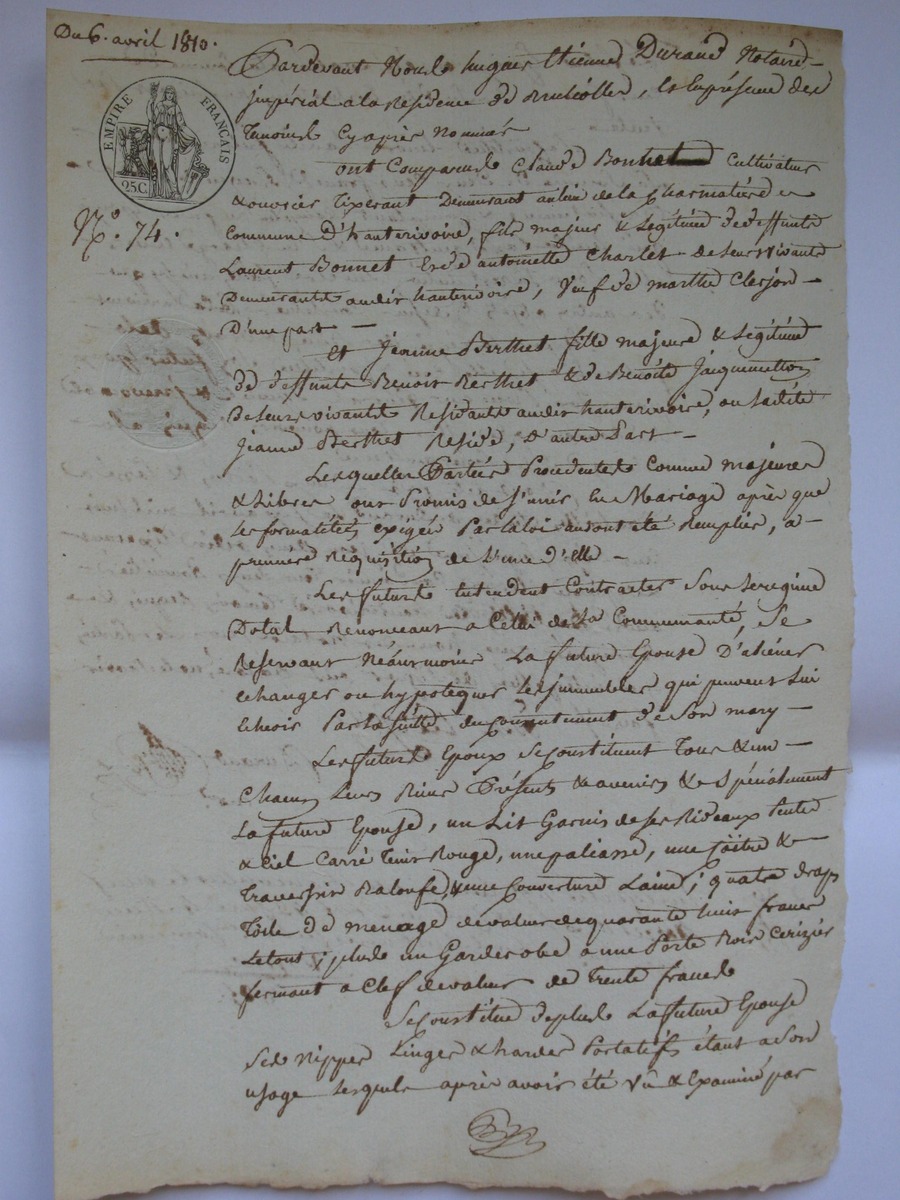 Du 6. avril 1810.
EMPIRE FRANÇAIS
25 C.
N.º 74.
Pardevant Nous hugues Etienne Durand Notaire
jmpérial a la Residence de Brullolles, et En présence des
Temoins Cy après Nommés
ont Comparus Claude Bonnet Cultivateur
& ouvrier Tixerant Demeurant au lieu de la Charmatière
Commune D'hauterivoire, fils majeur & Legitime de deffunts
Laurent Bonnet Et de antoinette Charlet de leur vivants
Demeurants audit hauterivoire, Veuf de marthe Clerjon
D'une part
Et Jeanne Berthet fille majeure & Legitime
de deffunts Benoit Berthet & de Benoite Jacquemetton
De leurs vivants Residants audit hauterivoire, ou ladite
Jeanne Berthet Reside, D'autre Part
Lesquelles Parties Procedentes Comme majeures
& Libres ont Promis de S'unir En Mariage après que
les formalités exigées Par la loi auront été Remplies, a
premiere Requisition de L'une d'Elle
Les futurs Entendent Contracter Sous le regime
Dotal Renonceant a Celui de La Communauté, Se
Reservant Néanmoins La future Epouse D'aliéner
Echanger ou hypotequer les jmmeubles qui peuvent lui
Echeoir Par la suitte du Consentement de Son mary
Les futurs Epoux Se Constituent Tous & un
Chacun Leurs Biens Présents & avenirs & Spécialement
La future Epouse, un Lit Garnis de ses Rideaux Pente
& Ciel Carré Teint Rouge, une paliasse, une Coitre &
Traversin Baloufe, & une Couverture Laine; quatre draps
Toile de menage de valeur de quarante huit francs
Le tout; plus un Garderobe a une Porte Bois Cerizier
fermant a Clef de valeur de Trente francs
Se Constitue de plus La future Epouse
Ses Nippes Linges & hardes Portatifs étant a Son
usage lesquels après avoir été Vû & Examiné par